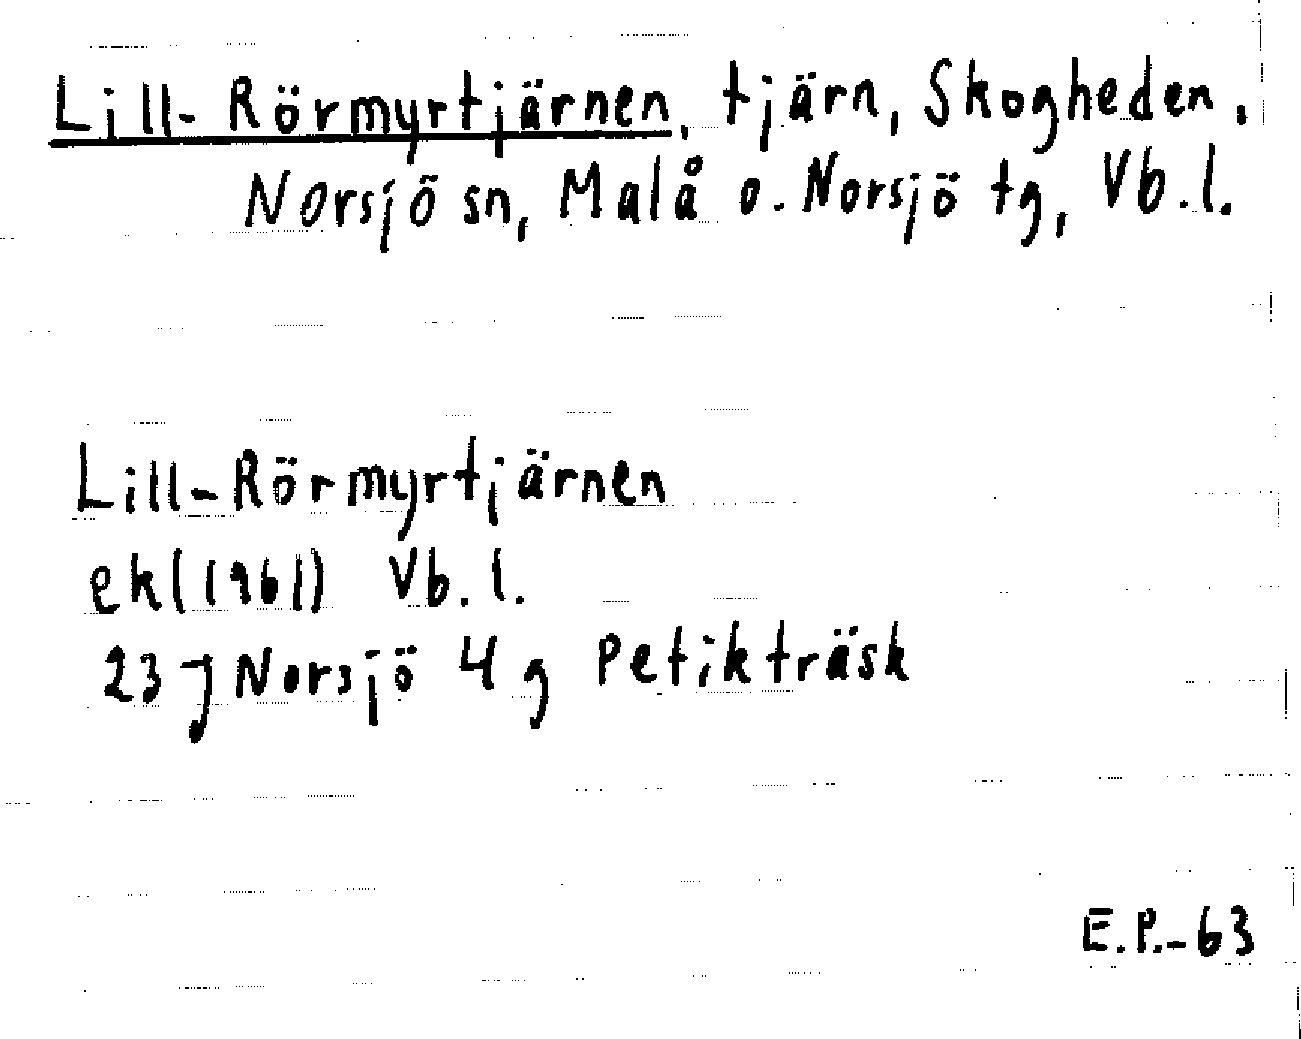 Lill-Rörmyrtjärnen, tjärn, Skogheden,
Norsjö sn, Malå o. Norsjö tg, Vb.l.
Lill-Rörmyrtjärnen
ek(1961) Vb.l.
23 J Norsjö 4 g Petikträsk
E.P.-63